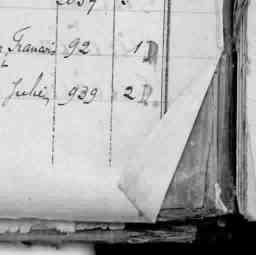 Francois 92 1 D
Julie, 939 2 D.